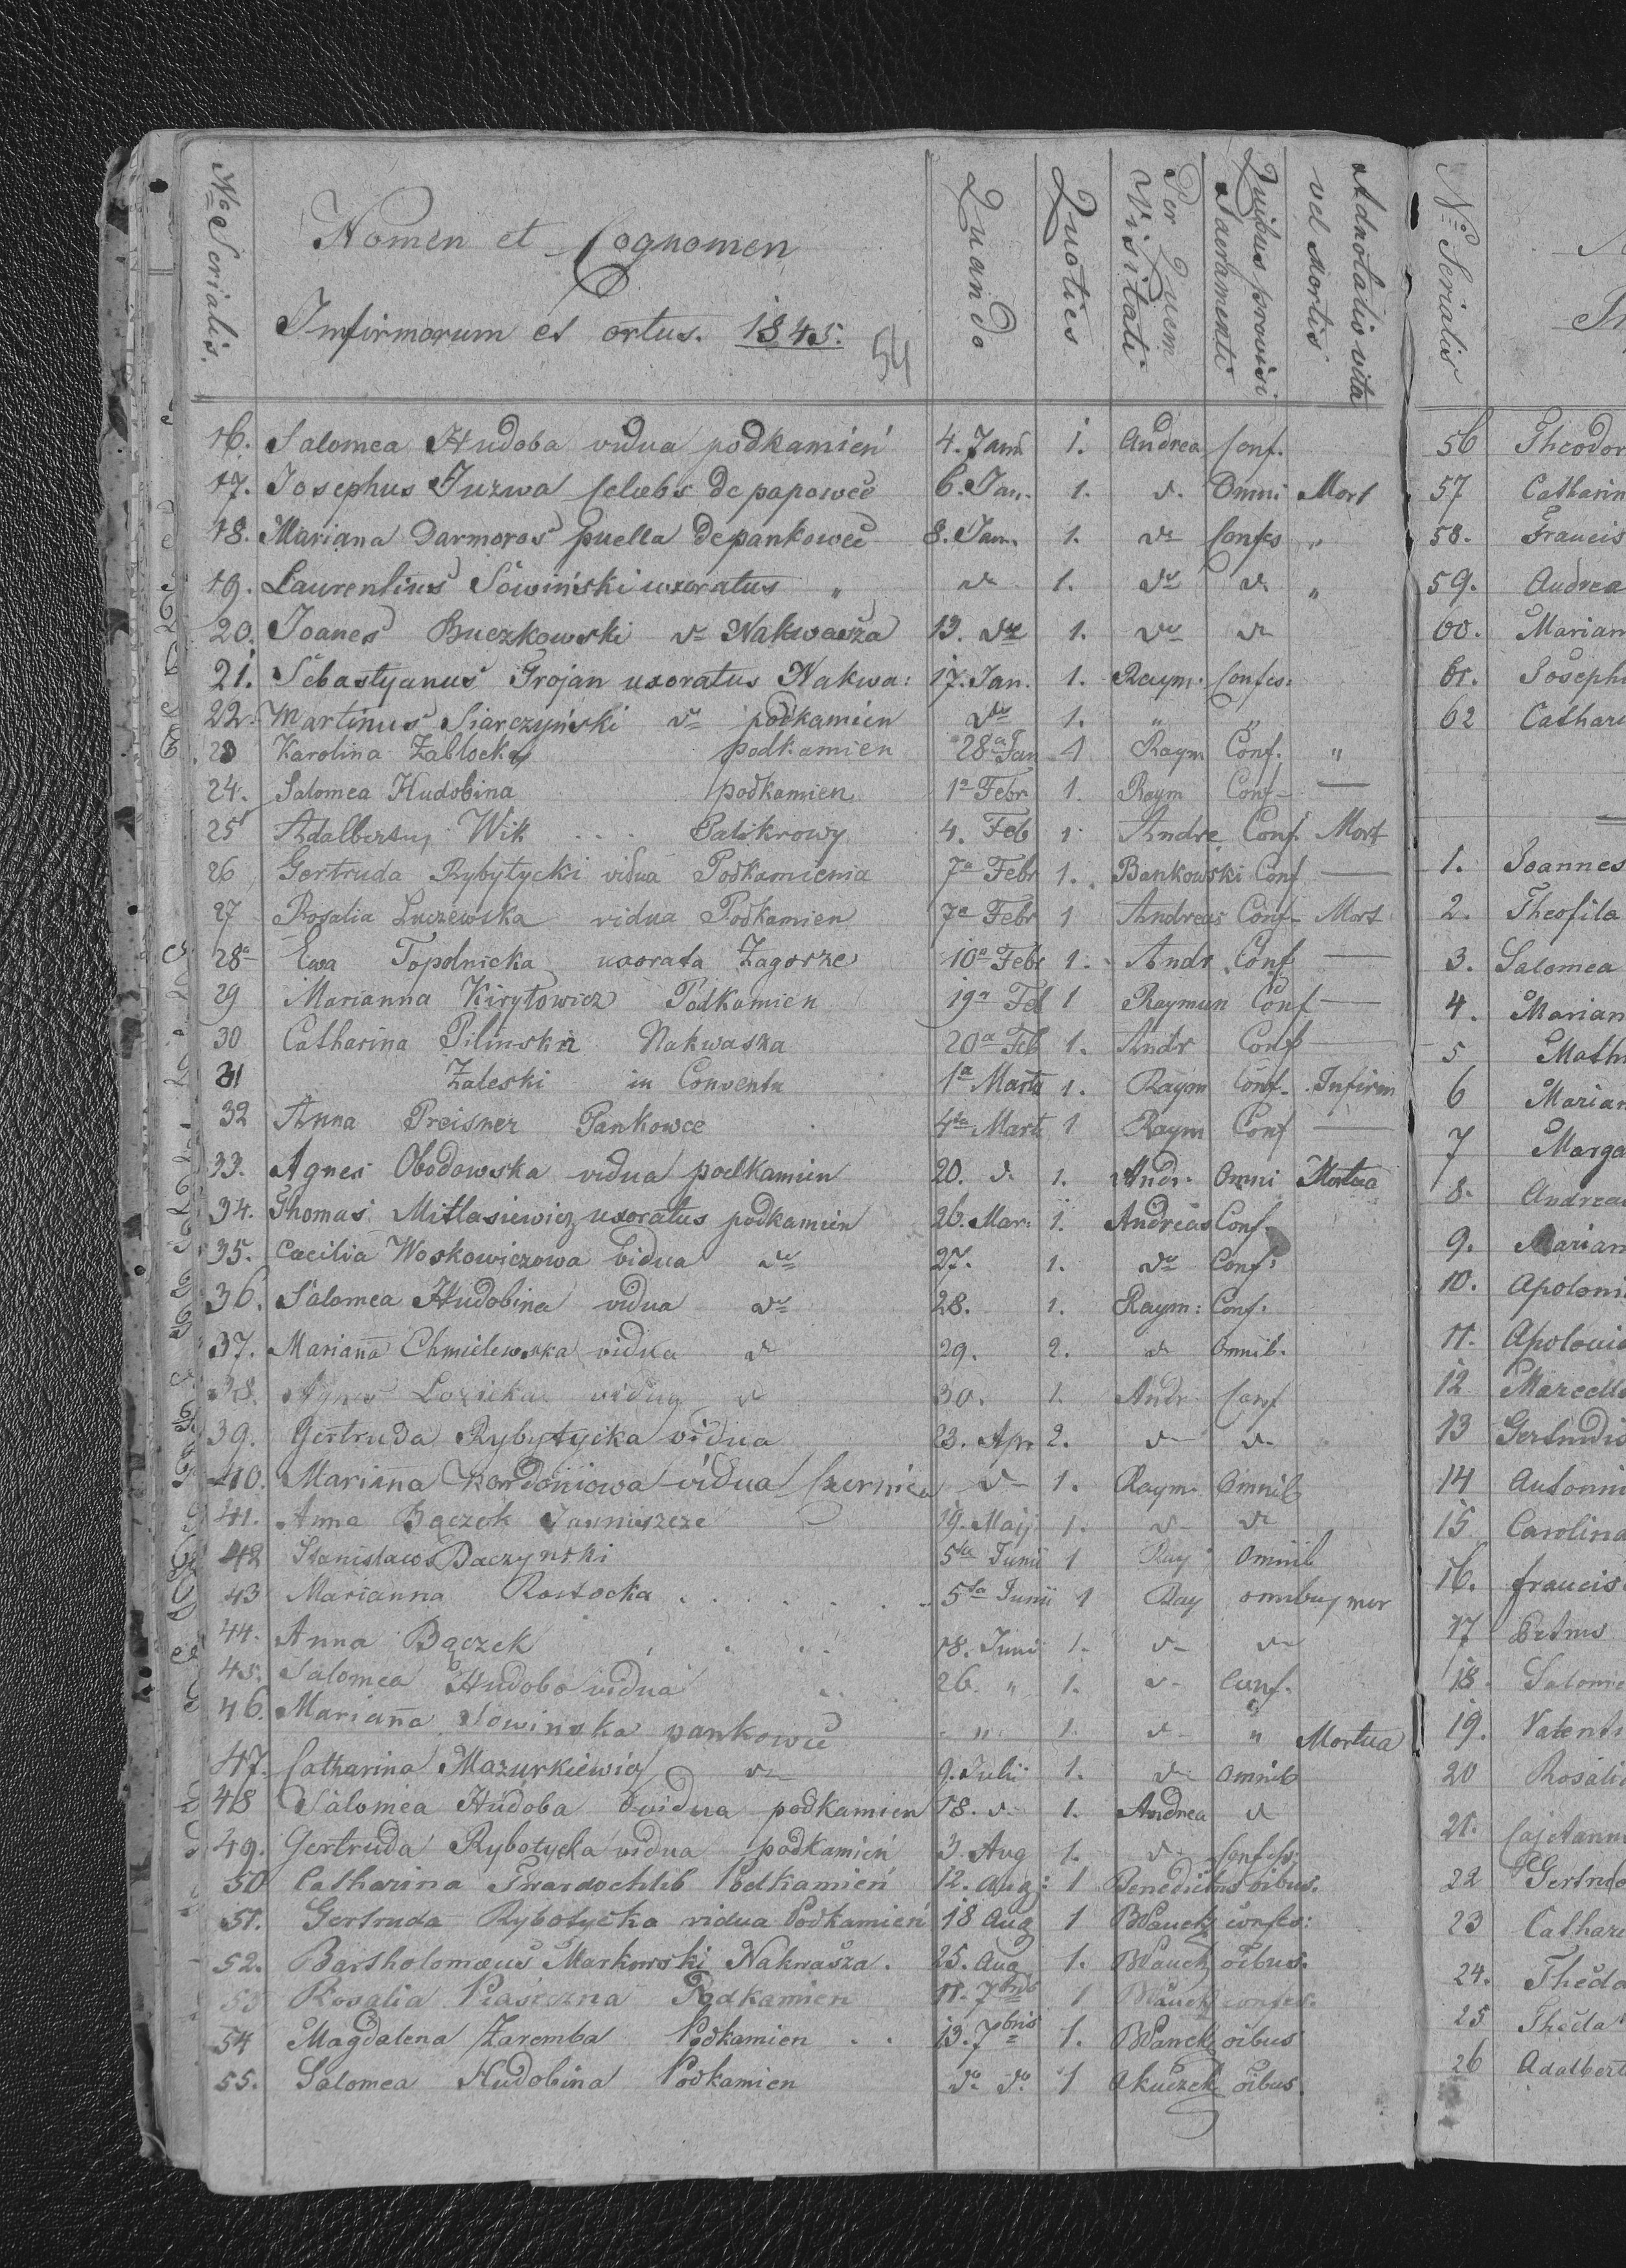 Nrō Serialis.
Nomen et Cognomen
Infirmorum et ortus. 1845.
54
Quando
Quoties
Per Quem Visitati
Quibus provisi Sacramenti
Adnotatio vita vel mortis
16. Salomea Hudoba vidua podkamień 4. Janu 1. Andrea Conf.
17. Josephus Juzwa Celebs de papowce 6. Jan. 1. do Omni Mort
18. Mariana Darmoros puella de pankowce 8. Jan. 1. do Confes "
19. Laurentius Sowiński uxoratus " do 1. do do "
20. Joanes Buczkowski do Nakwasza 13. do 1. do do
21. Sebastyanus Trojan uxoratus Nakwa: 17. Jan. 1. Raym. Confes:
22. Martinus Siarczyński do podkamien do 1. " "
23 Karolina Zablocka podkamien 28a Jan 1 Raym Conf. "
24. Salomea Hudobina podkamien 1a Febr 1. Raym Conf —
25 Adalbertus Wik .... Palikrowy 4. Feb 1. Andre Conf. Mort
26 Gertruda Rybytycki vidua Podkamienia 7a Febr 1. Bankowski Conf —
27 Rosalia Luczewska vidua Podkamien 7a Febr 1 Andreas Conf Mort
28a Ewa Topolnicka uxorata Zagorze 10a Febr 1. Andr Conf —
29 Marianna Kiryłowicz Podkamien 19a Feb 1 Raymun Conf —
30 Catharina Pilinski Nakwasza 20a Feb 1. Andr Conf —
31 Zaleski in Conventu 1a Marti 1. Raym Conf. Infirm
32 Anna Preisner Pankowce 4ta Marti 1 Raym Conf —
33. Agnes Obodowska vidua podkamien 20. do 1. Andr. Omni Mortua
34. Thomas Mitlasiewicz uxoratus podkamien 26. Mar: 1. Andreas Conf.
35. Caecilia Woskowiczowa vidua do 27. 1. do Conf:
36. Salomea Hudobina vidua do 28. 1. Raym: Conf.
37. Mariana Chmielewska vidua do 29. 2. do Omnib.
38. Agnes Lozicka vidua do 30. 1. Andr Conf
39. Gertruda Rybytycka vidua 23. Apr 2. do do
40. Marianna Kordoniowa vidua Czernica do 1. Raym. Omnib
41. Anna Bączek 19. Maij 1. do do
42 Stanislaws Baczynski 5ta Junii 1 Ray omnib
43 Marianna Rostocka . . . . . . 5ta Junii 1 Ray omnibus mor
44. Anna Bączek . . . . 18. Junii 1. do do
45. Salomea Hudobo vidua 26. " 1. do Conf.
46. Marianna Sowinska pankowce " 1. do " Mortua
47. Catharina Mazurkiewicz do 9. Julii 1. do omnib
48 Salomea Hudoba vidua podkamien 18. do 1. Andrea do
49. Gertruda Rybotycka vidua podkamień 3. Aug 1. do Confess:
50 Catharina Twardochlib Podkamień 12. Aug: 1 Benedictus oibus.
51. Gertruda Rybotycka vidua Podkamień 18 Aug 1 BWanek confes:
52. Bartholomæus Markowski Nakwasza. 25. Aug 1. BWanek oibus.
53 Rosalia Piaseczna Podkamien 11. 7bris 1 BWanek confes.
54 Magdalena Zaremba Podkamien . . 13. 7bris 1. BWanek oibus
55. Salomea Hudobina Podkamien do do 1 Okuczek oibus.
Nro Serialis
56 Theodor
57 Catharin
58. Francis
59. Andrea
60. Marian
61. Joseph
62 Cathar
1. Joannes
2. Theofila
3. Salomea
4. Marian
5 Math
6 Marian
7 Marga
8. Andrea
9. Marian
10. Apoloni
11. Apolonia
12 Marcell
13 Gertrudis
14 Antonin
15 Carolina
16. Francis
17 Petrus
18. Salome
19. Valent
20 Rosalia
21. Cajetann
22 Gertrud
23 Cathar
24. Thecla
25 Thecla
26 Adalbert